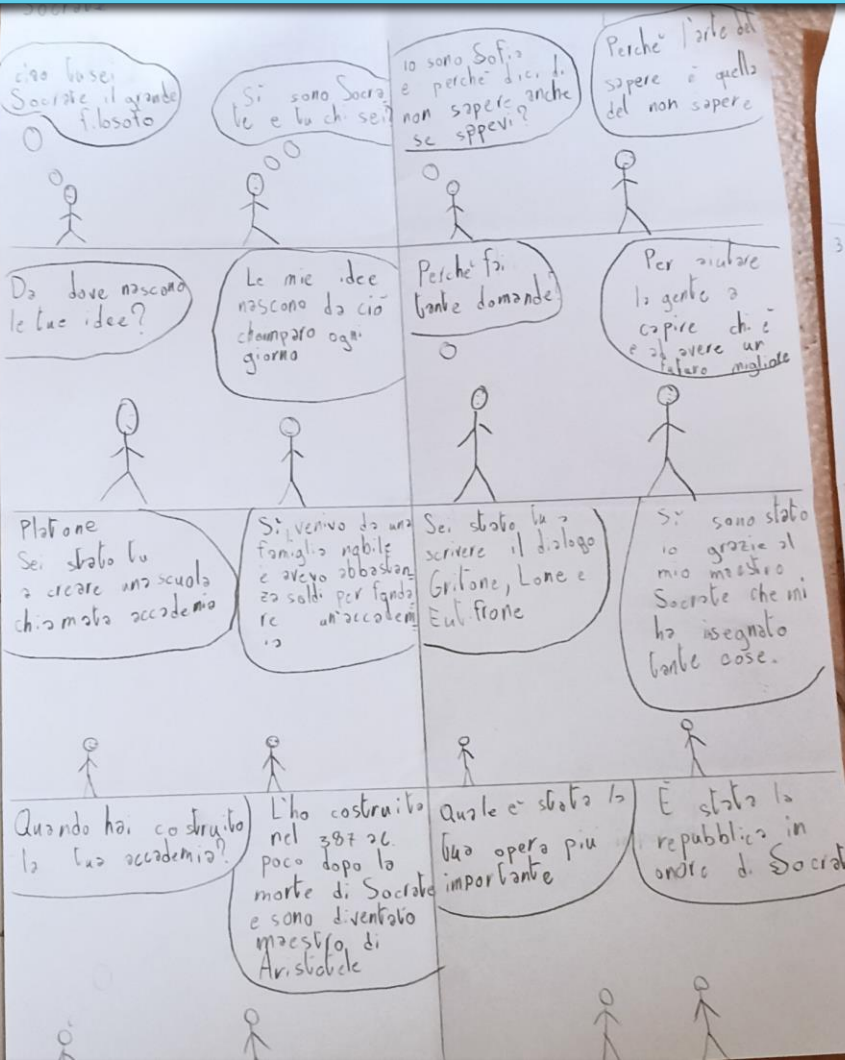 Socrate
ciao tu sei
Socrate il grande
filosofo
Si sono Socra
te e tu chi sei?
io sono Sofia
e perchè dici di
non sapere anche
se sapevi?
Perchè l'arte del
sapere è quella
del non sapere
Da dove nascono
le tue idee?
Le mie idee
nascono da ciò
che imparo ogni
giorno
Perchè fai
tante domande?
Per aiutare
la gente a
capire chi è
e ad avere un
futuro migliore
Platone
Sei stato tu
a creare una scuola
chiamata accademia
Sì, venivo da una
famiglia nobile
e avevo abbastan
za soldi per fonda
re un'accadem
ia
Sei stato tu a
scrivere il dialogo
Gritone, Lone e
Eutifrone
Sì sono stato
io grazie al
mio maestro
Socrate che mi
ha insegnato
tante cose.
Quando hai costruito
la tua accademia?
L'ho costruita
nel 387 ac.
poco dopo la
morte di Socrate
e sono diventato
maestro di
Aristotele
Quale è stata la
tua opera più
importante
È stata la
repubblica in
onore di Socrat
3